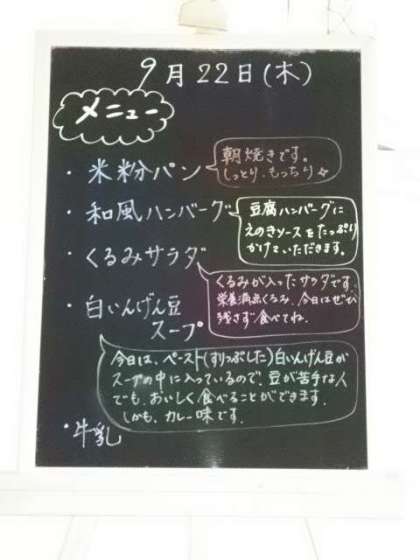 9月22日(木)
メニュー
・米粉パン
朝焼きです。
しっとり、もっちり
・和風ハンバーグ
豆腐ハンバーグに
えのきソースをたっぷり
かけていただきます。
・くるみサラダ
くるみが入ったサラダです。
栄養満点くるみ、今日はぜひ
残さず食べてね。
・白いんげん豆
スープ
今日は、ペースト(すりつぶした)白いんげん豆が
スープの中に入っているので、豆が苦手な人
でも、おいしく食べることができます。
しかも、カレー味です。
・牛乳